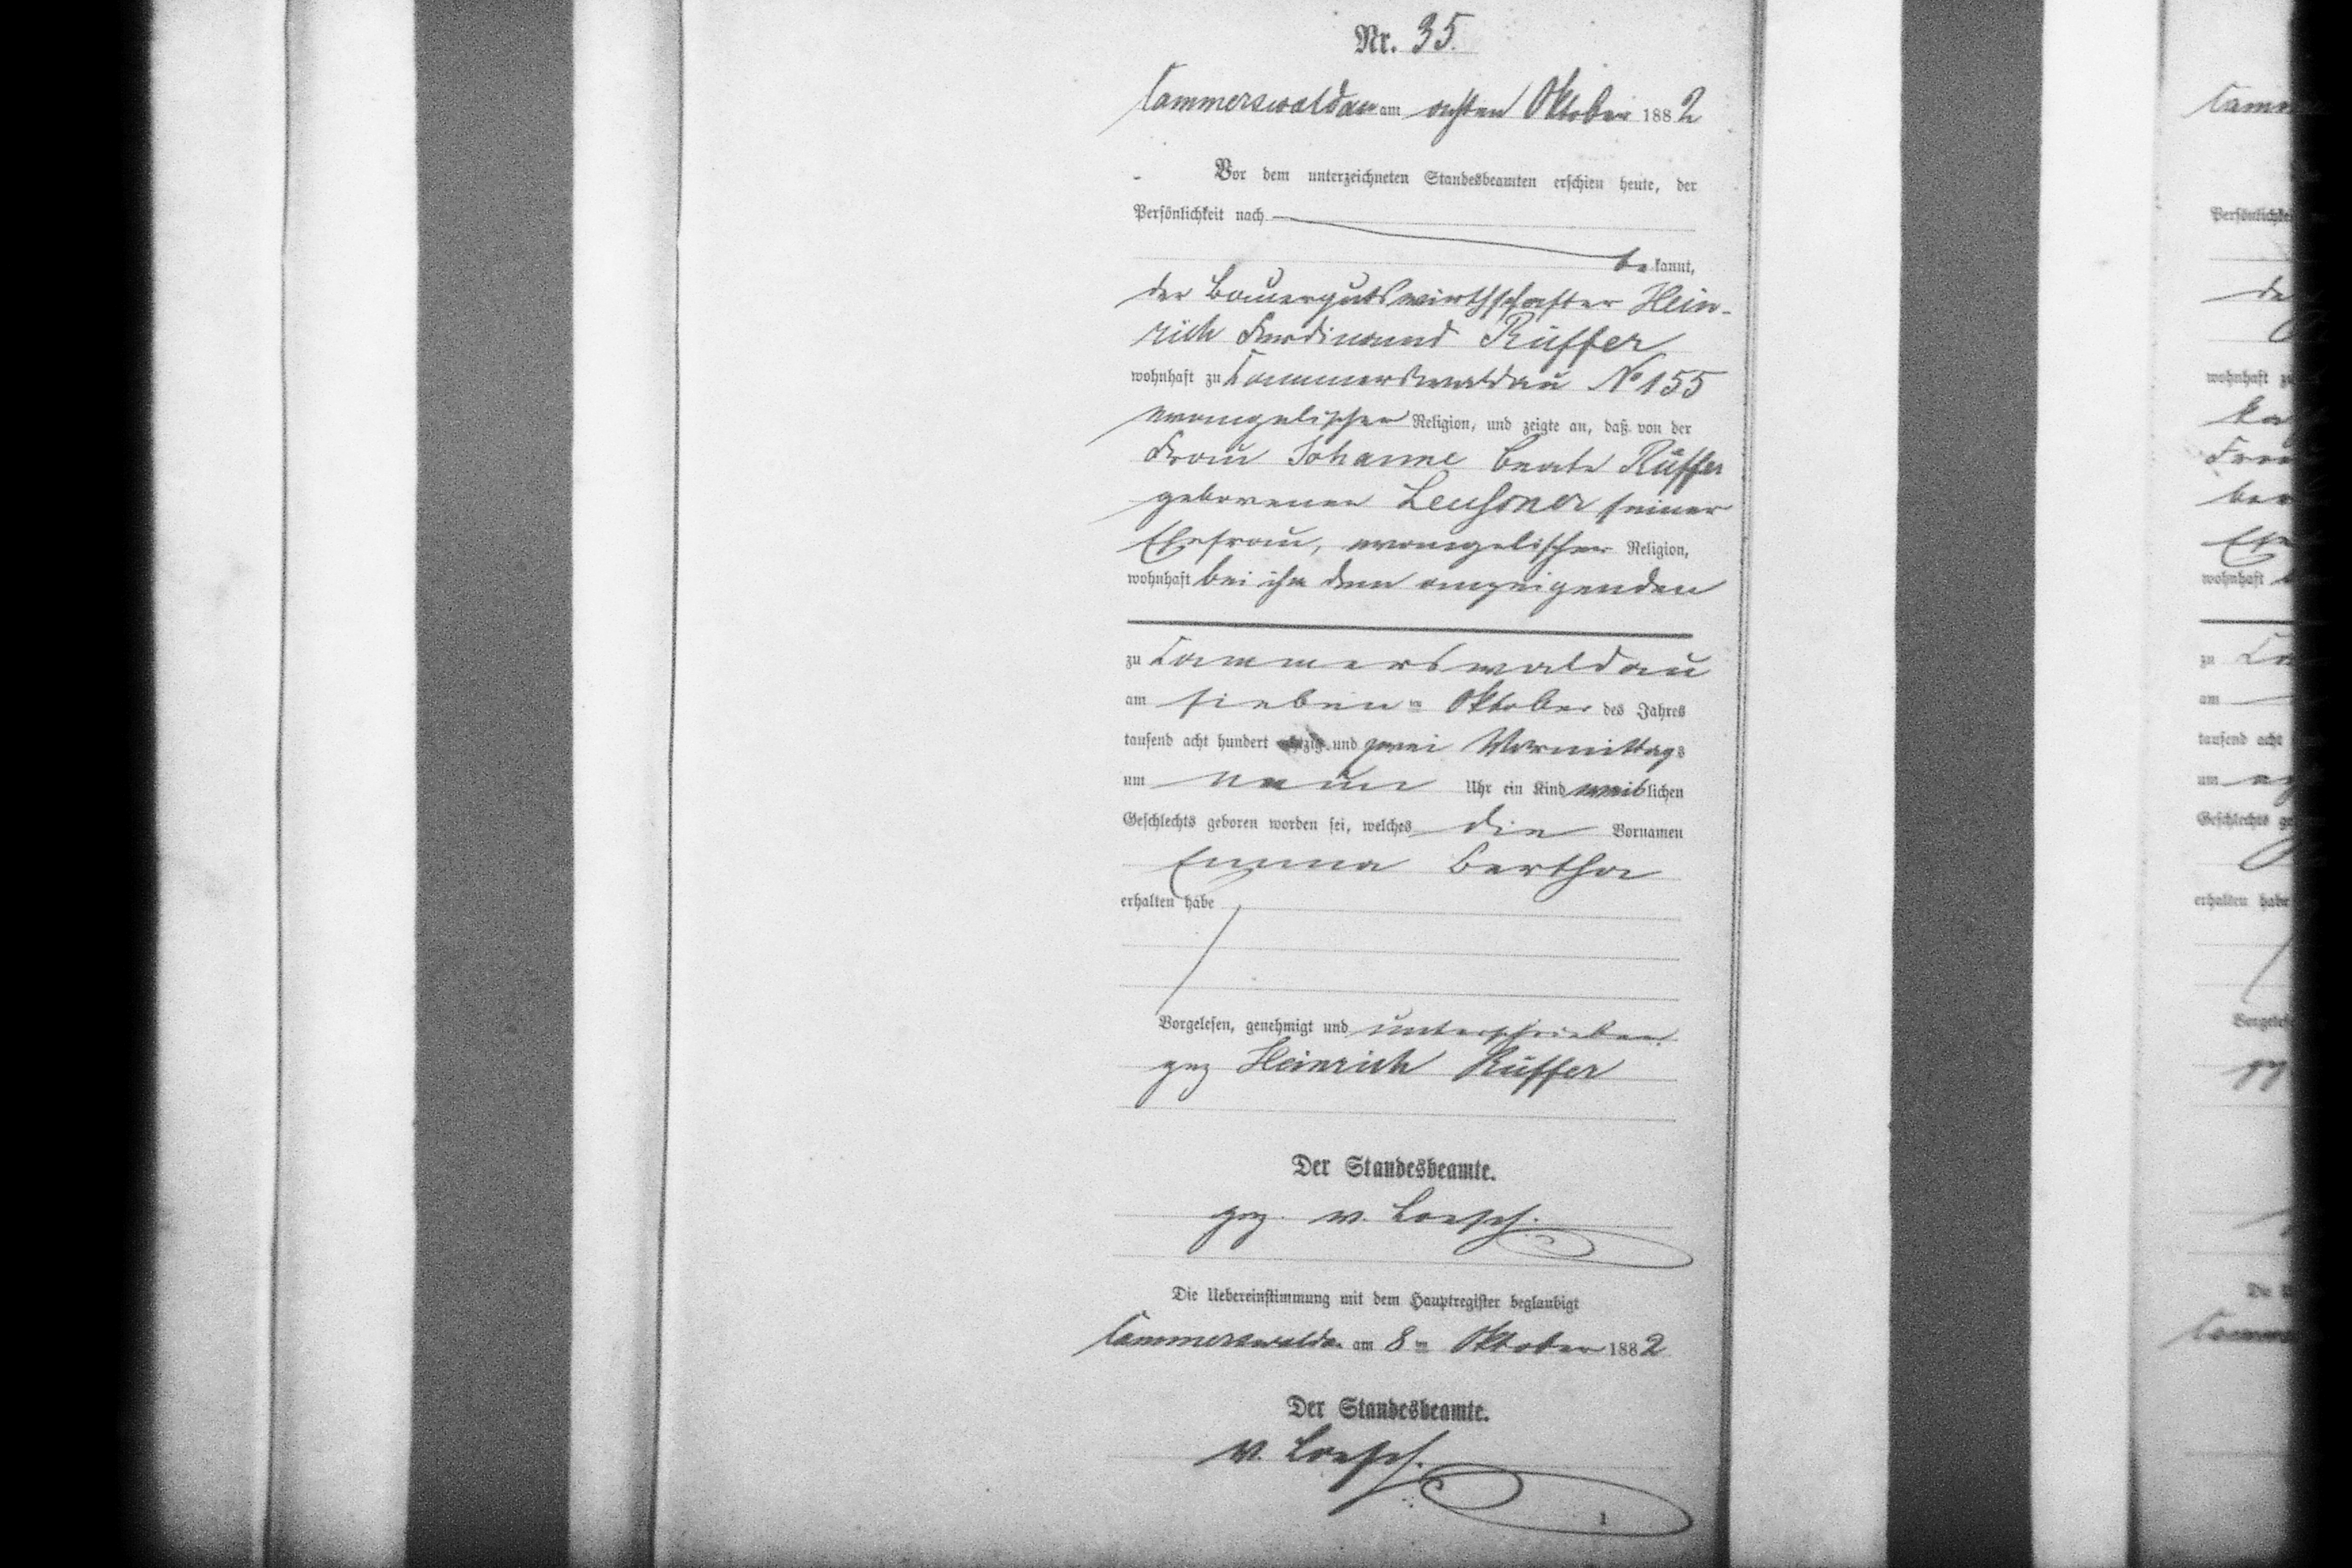 Nr. 35.
Cammerswaldau am achten Oktober 1882
Vor dem unterzeichneten Standesbeamten erschien heute, der
Persönlichkeit nach
bekannt,
der Bauergutswirthschafter Hein-
rich Ferdinand Rüffer
wohnhaft zu Cammerswaldau No 155
evangelischer Religion, und zeigte an, daß von der
Frau Johanne Beate Rüffer
geborenen seiner
Ehefrau, evangelischer Religion,
wohnhaft bei ihm dem anzeigenden
zu Cammerswaldau
am siebenten Oktober des Jahres
tausend acht hundert achtzig und zwei Vormittags
um neun Uhr ein Kind weiblichen
Geschlechts geboren worden sei, welches die Vornamen
Emma Bertha
erhalten habe
Vorgelesen, genehmigt und unterschrieben.
gez Heinrich Rüffer
Der Standesbeamte.
gez. v. Loesch.
Die Uebereinstimmung mit dem Hauptregister beglaubigt
Cammerswaldau am 8ten Oktober 1882
Der Standesbeamte.
v. Loesch.
1